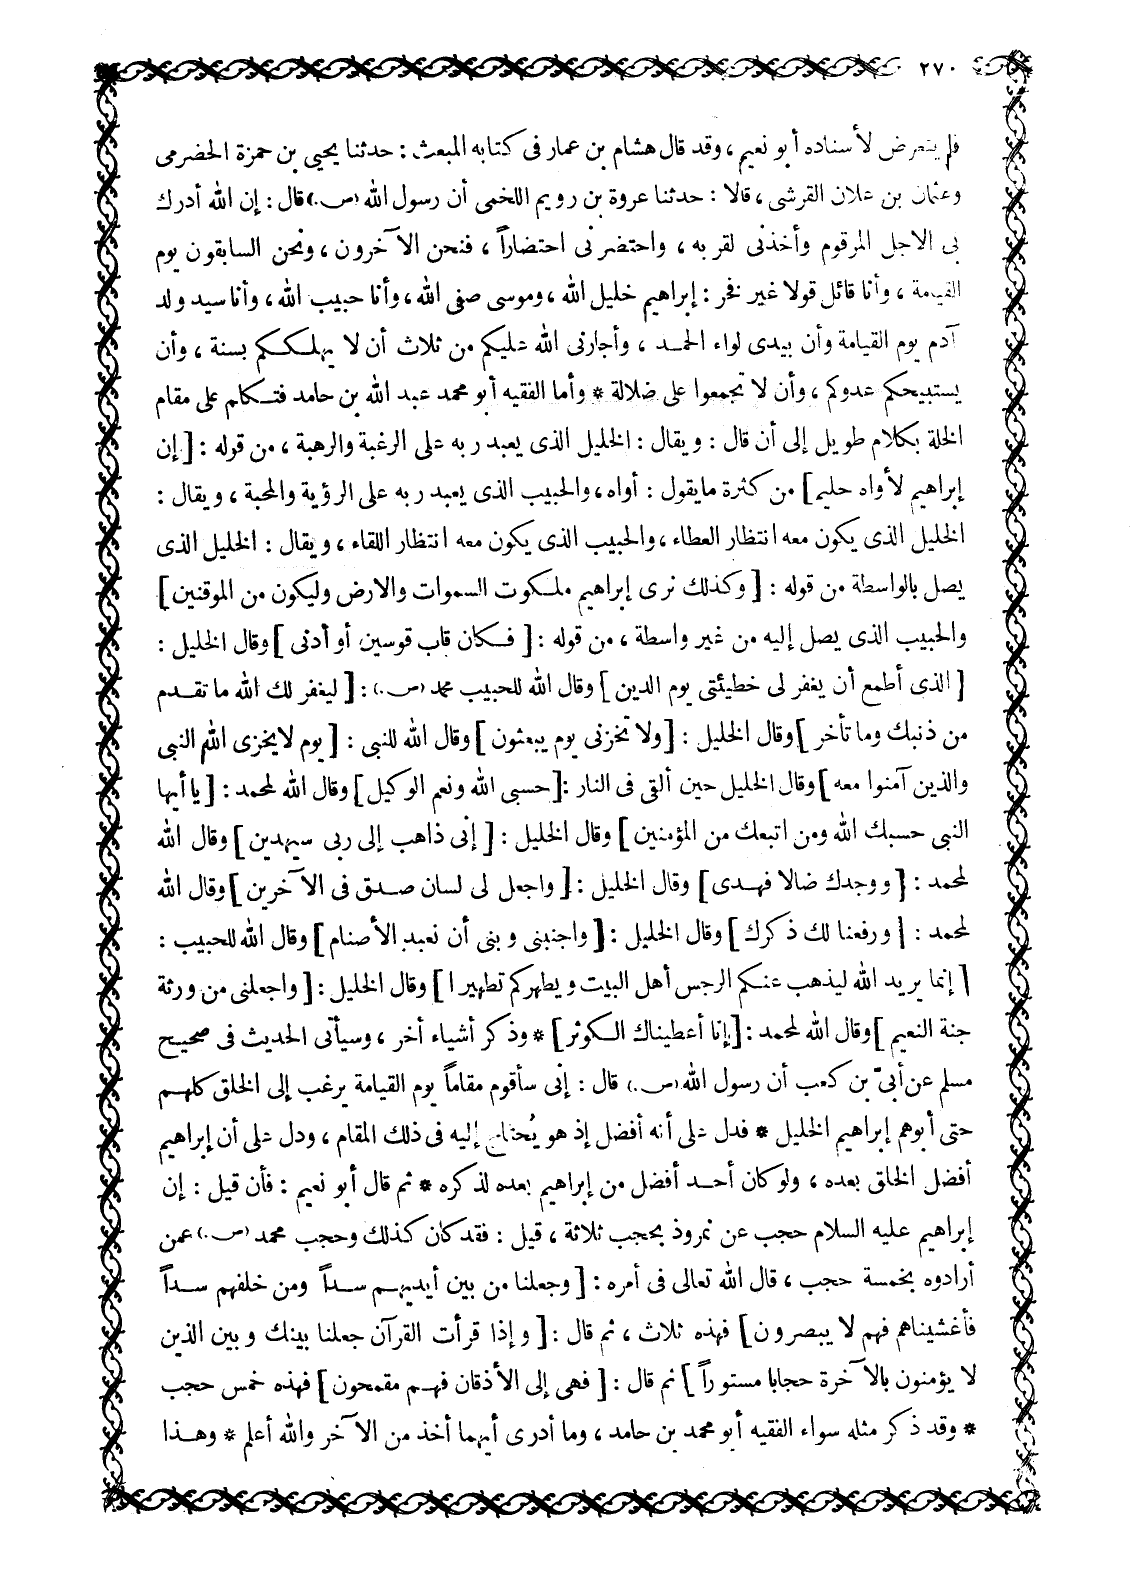 ٢٧٠
فلم يتعرض لأسناده أبو نعيم، وقد قال هشام بن عمار فى كتابه المبعث: حدثنا يحيى بن حمزة الحضرمى
وعثمان بن علان القرشى، قالا: حدثنا عروة بن رويم اللخمى أن رسول الله (ص.) قال: إن الله أدرك
بى الاجل المرقوم وأخذنى لقربه، واحتضرنى احتضاراً، فنحن الآخرون، ونحن السابقون يوم
القيامة، وأنا قائل قولا غير فخر: إبراهيم خليل الله، وموسى صفى الله، وأنا حبيب الله، وأنا سيد ولد
آدم يوم القيامة وأن بيدى لواء الحمد، وأجارنى الله عليكم من ثلاث أن لا يهلككم بسنة، وأن
يستبيحكم عدوكم، وأن لا تجمعوا على ضلالة * وأما الفقيه أبو محمد عبد الله بن حامد فتكلم على مقام
الخلة بكلام طويل إلى أن قال: ويقال: الخليل الذى يعبد ربه على الرغبة والرهبة، من قوله: [إن
إبراهيم لأواه حليم] من كثرة ما يقول: أواه، والحبيب الذى يعبد ربه على الرؤية والمحبة، ويقال:
الخليل الذى يكون معه انتظار العطاء، والحبيب الذى يكون معه انتظار اللقاء، ويقال: الخليل الذى
يصل بالواسطة من قوله: [وكذلك نرى إبراهيم ملكوت السموات والارض وليكون من الموقنين]
والحبيب الذى يصل إليه من غير واسطة، من قوله: [فكان قاب قوسين أو أدنى] وقال الخليل:
[الذى أطمع أن يغفر لى خطيئتى يوم الدين] وقال الله للحبيب محمد (ص.): [ليغفر لك الله ما تقدم
من ذنبك وما تأخر] وقال الخليل: [ولا تخزنى يوم يبعثون] وقال الله للنبى: [يوم لا يخزى الله النبى
والذين آمنوا معه] وقال الخليل حين ألقى فى النار: [حسبى الله ونعم الوكيل] وقال الله لمحمد: [يا أيها
النبى حسبك الله ومن اتبعك من المؤمنين] وقال الخليل: [إنى ذاهب إلى ربى سيهدين] وقال الله
لمحمد: [ووجدك ضالا فهدى] وقال الخليل: [واجعل لى لسان صدق فى الآخرين] وقال الله
لمحمد: [ورفعنا لك ذكرك] وقال الخليل: [واجنبنى وبنى أن نعبد الأصنام] وقال الله للحبيب:
[إنما يريد الله ليذهب عنكم الرجس أهل البيت ويطهركم تطهيرا] وقال الخليل: [واجعلنى من ورثة
جنة النعيم] وقال الله لمحمد: [إنا أعطيناك الكوثر] * وذكر أشياء أخر، وسيأتى الحديث فى صحيح
مسلم عن أبىّ بن كعب أن رسول الله (ص.) قال: إنى سأقوم مقاماً يوم القيامة يرغب إلى الخلق كلهم
حتى أبوهم إبراهيم الخليل * فدل على أنه أفضل إذ هو يُحتاج إليه فى ذلك المقام، ودل على أن إبراهيم
أفضل الخلق بعده، ولو كان أحد أفضل من إبراهيم بعده لذكره * ثم قال أبو نعيم: فأن قيل: إن
إبراهيم عليه السلام حجب عن نمروذ بحجب ثلاثة، قيل: فقد كان كذلك وحجب محمد (ص.) عمن
أرادوه بخمسة حجب، قال الله تعالى فى أمره: [وجعلنا من بين أيديهم سداً ومن خلفهم سداً
فأغشيناهم فهم لا يبصرون] فهذه ثلاث، ثم قال: [وإذا قرأت القرآن جعلنا بينك وبين الذين
لا يؤمنون بالآخرة حجابا مستوراً] ثم قال: [فهى إلى الأذقان فهم مقمحون] فهذه خمس حجب
* وقد ذكر مثله سواء الفقيه أبو محمد بن حامد، وما أدرى أيهما أخذ من الآخر والله أعلم * وهذا